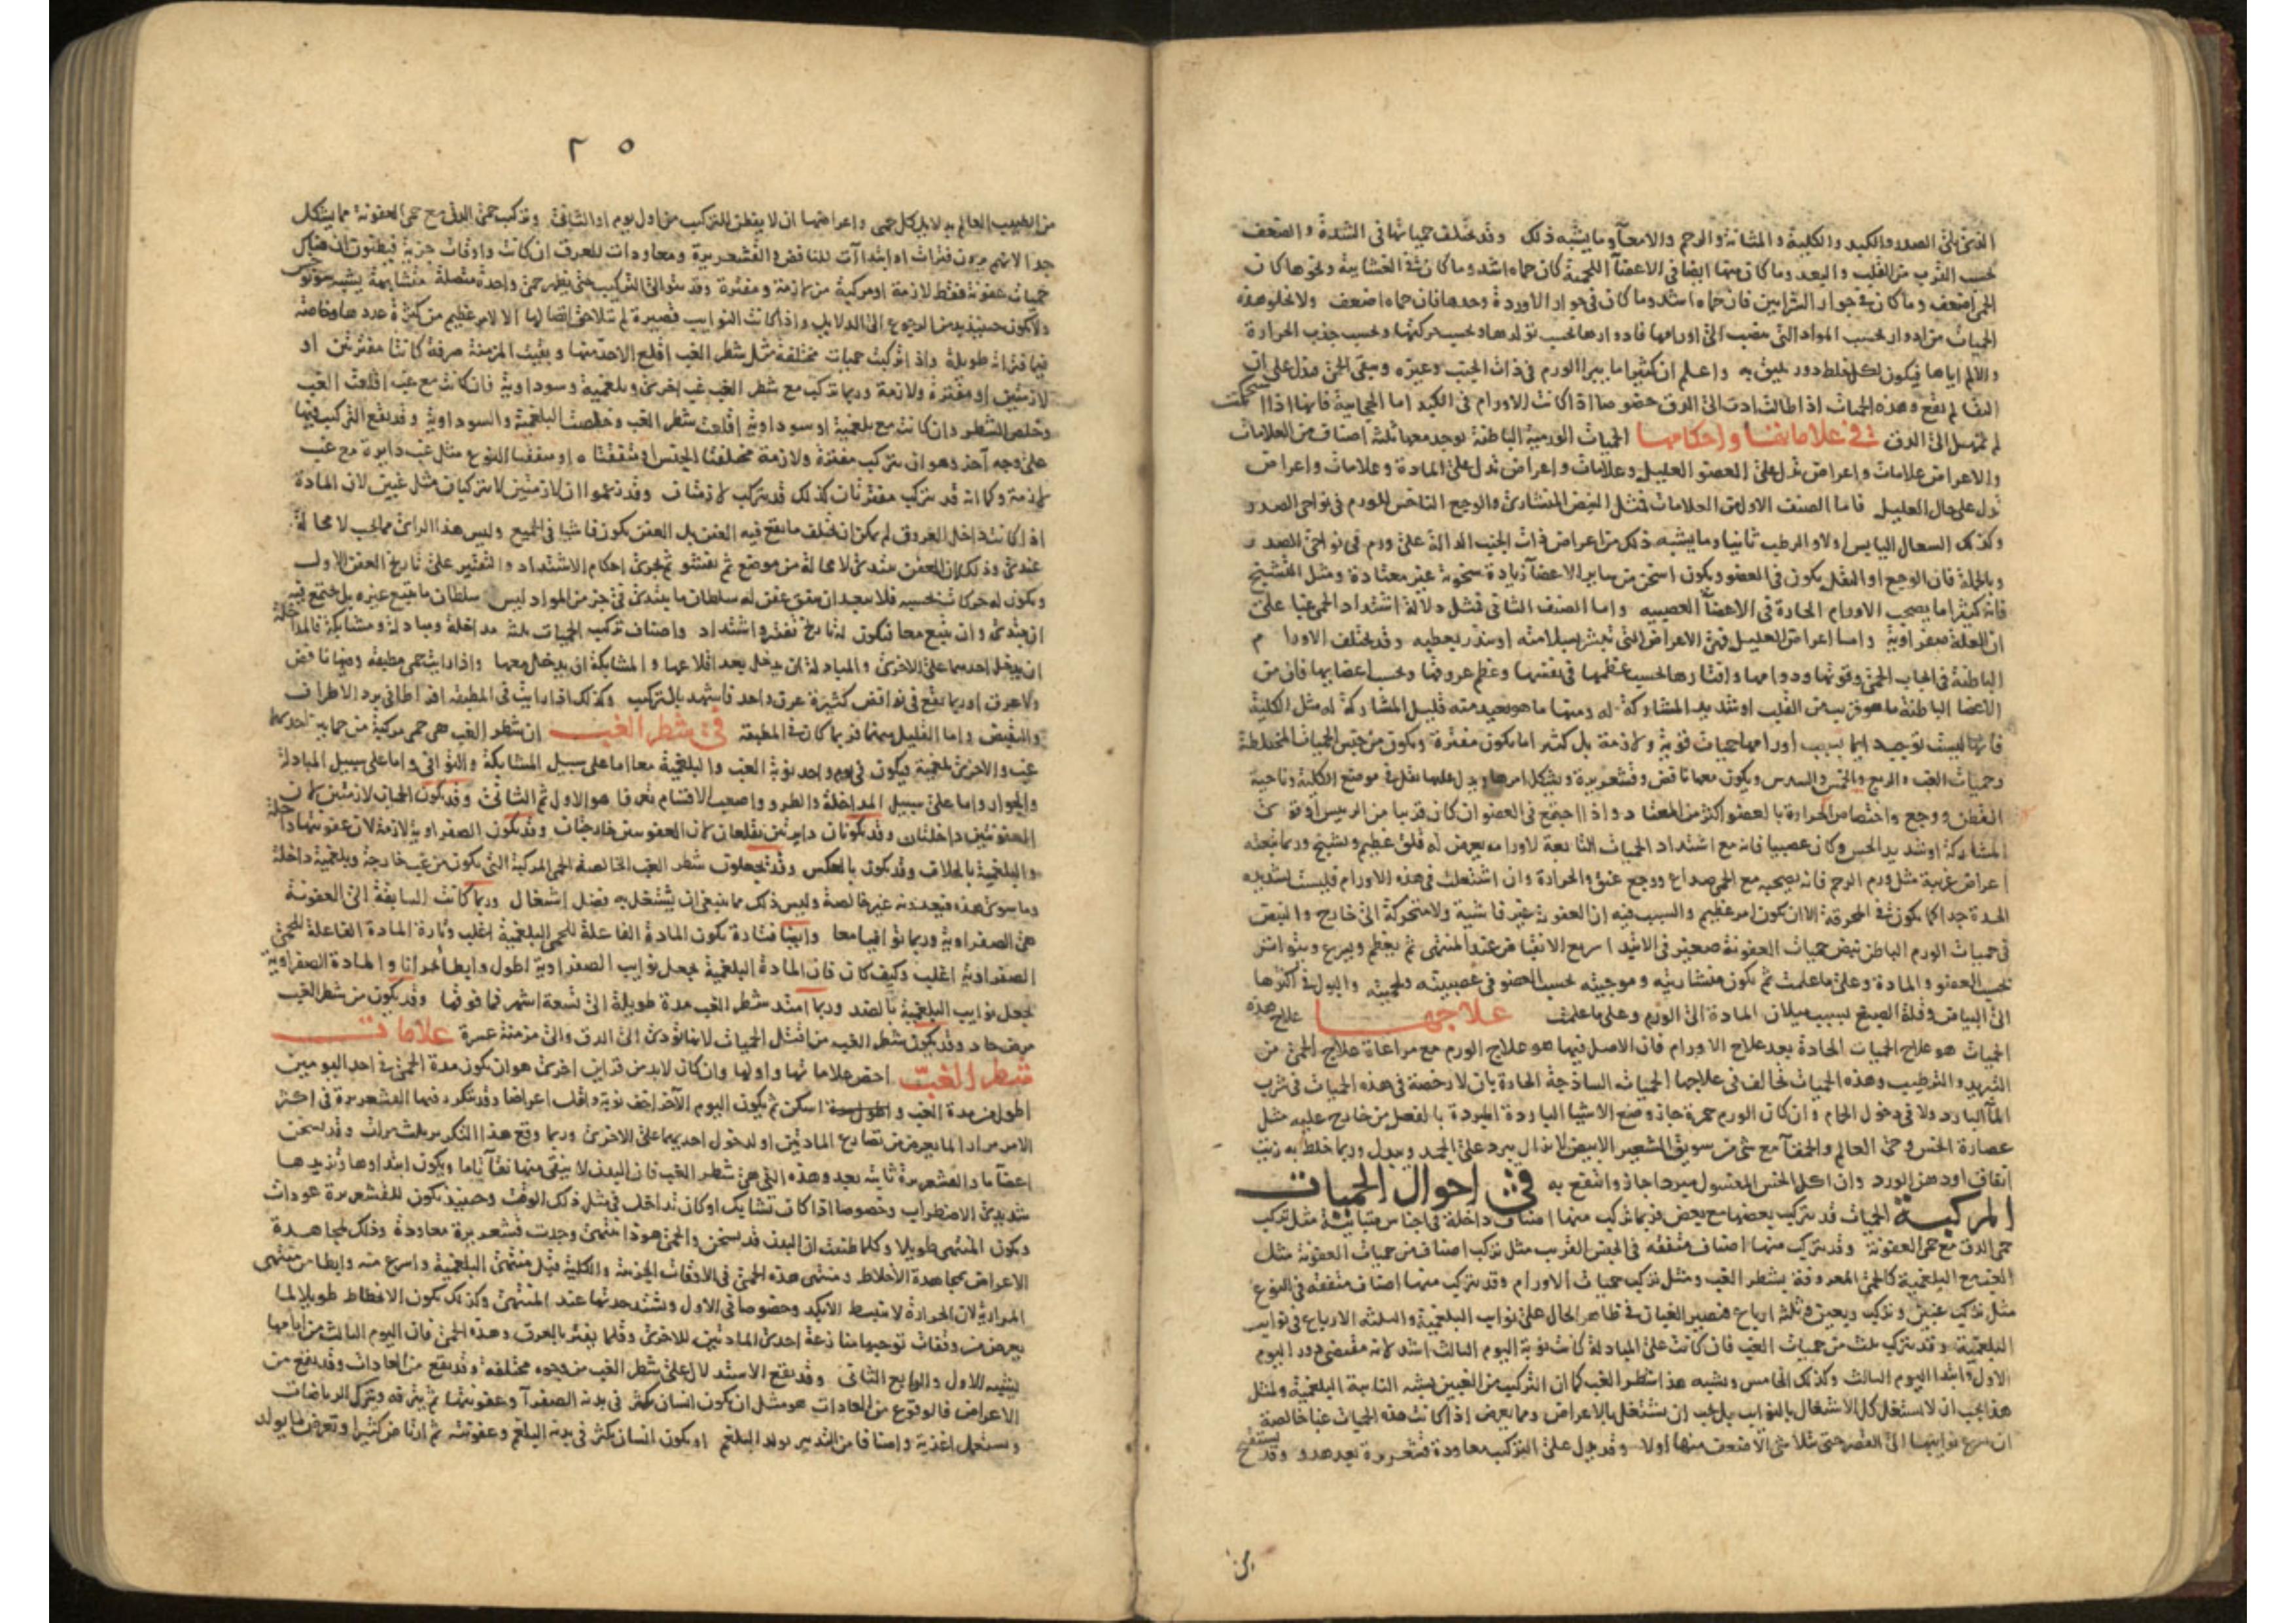 الفتق في الصدر والكبد والكلية والمثانة والرحم والامعآ وما يشبه ذلك وقد تختلف حمياتها فى الشدة والضعف
بحسب القرب من القلب والبعد وما كان منها ايضا فى الاعضآ اللحمية كان حماه اشد وما كان فى الغشايية ونحوها كان
الحمى اضعف وما كان فى جوار الشرايين فان حماه اشد وما كان فى جوار الاوردة وحدها فان حماه اضعف ولا تخلو هذه
الحميات من ادوار بحسب المواد التى تنصب الى اورامها فادوارها بحسب تولدها وبحسب حركتها وبحسب جذب الحرارة
والالم اياها فيكون لكل خلط دور يليق به واعلم ان كثيرا ما يبرا الورم فى ذات الجنب وغيره وتبقى الحمى فتدل على ان
النقا لم يقع وهذه الحميات اذا طالت ادت الى الدق خصوصا اذا كانت الاورام فى الكبد اما الحجابية فانها اذا استحكمت
لم تمهل الى الدق فى علاماتها واحكامها الحميات الورمية الباطنة يوجد معها ثلثة اصناف من العلامات
والاعراض علامات واعراض تدل على العضو العليل وعلامات واعراض تدل على المادة وعلامات واعراض
تدل على حال العليل فاما الصنف الاول من العلامات فمثل النبض المنشارى والوجع الناخس للورم فى نواحى الصدر
وكذلك السعال اليابس اولا والرطب ثانيا وما يشبه ذلك من اعراض ذات الجنب الدالة على ورم فى نواحى الصدر
وبالجملة فان الوجع او الثقل يكون فى العضو ويكون اسخن من ساير الاعضآ زيادة سخونة غير معتادة ومثل التشنج
فانه كثيرا ما يصحب الاورام الحادة فى الاعضآ العصبيه واما الصنف الثانى فمثل دلالة اشتداد الحمى غبا على
ان العلة صفراوية واما اعراض العليل فهى الاعراض التى تبشر بسلامته او تنذر بعطبه وقد تختلف الاورام
الباطنة فى ايجاب الحمى وقوتها ودوامها وافتارها بحسب عظمها فى نفسها وعظم عروقها وبحسب اعضايها فان من
الاعضا الباطنة ما هو قريب من القلب او شديد المشاركة له ومنها ما هو بعيد منه قليل المشاركة له مثل الكلية
فانها ليست توجب ايما بسبب اورامها حميات قوية ولازمة بل كثيرا ما يكون مفترة ويكون من جنس الحميات المختلطة
وحميات الغب والربع والخمس والسدس ويكون معها نافض وقشعريرة ويشكل امرها ويدل عليها ثقل فى موضع الكلية وناحية
القطن ووجع واختصاص الحرارة بالعضو اكثر من المعتاد واذا اجتمع فى العضو ان كان قريبا من الريس او قوى
المشاركة او شديد الحس وكان عصبيا فانه مع اشتداد الحميات التابعة لاورامه يعرض له قلق عظيم وتشنج وربما تبعته
اعراض غريبة مثل ورم الرحم فانه يصحبه مع الحمى صداع ووجع عنق والحرارة وان اشتعلت فى هذه الاورام فليست شديده
الحدة جدا كما يكون فى المحرقة الا ان يكون امر عظيم والسبب فيه ان العفونة غير فاشية ولا متحركة الى خارج والنبض
فى حميات الورم الباطن نبض حميات العفونة صغير فى الابتدا سريع الانقباض عند المنتهى ثم يعظم ويسرع ويتواتر
بحسب العضو والمادة وعلى ما علمت ثم يكون منشاريته وموجيته بحسب العضو فى عصبيته ولحميته والبول فى اكثرها
الى البياض وقلة الصبغ بسبب ميلان المادة الى الورم وعلى ما علمت علاجها علاج هذه
الحميات هو علاج الحميات الحادة بعد علاج الاورام فان الاصل فيها هو علاج الورم مع مراعاة علاج الحمى من
التبريد والترطيب وهذه الحميات تخالف فى علاجها الحميات الساذجة الحادة بان لا رخصة فى هذه الحميات فى شرب
المآ البارد ولا فى دخول الحمام وان كان الورم حمرة جاز وضع الاشيا الباردة المبردة بالفعل من خارج عليه مثل
عصارة الخس وحى العالم والحمقآ مع شى من سويق الشعير الابيض لا يزال يبرد على الجمد ويبدل وربما خلط به زيت
انفاق او دهن الورد وان اكل الخس المغسول مبردا جاز وانتفع به فى احوال الحميات
المركبة الحميات قد يتركب بعضها مع بعض فربما تركب منها اصناف داخلة فى اجناس متباينة مثل تركب
حمى الدق مع حمى العفونة وقد يتركب منها اصناف متفقه فى الجنس القريب مثل تركب اصناف من حميات العفونة مثل
الغب مع البلغمية كالحمى المعروفة بشطر الغب ومثل تركب حميات الاورام وقد يتركب منها اصناف متفقه فى النوع
مثل تركب غبين وتركب ربعين وثلثه ارباع فتصير الغبان فى ظاهر الحال على نوايب البلغمية والثلثه الارباع فى نوايب
البلغمية وقد يتركب ثلث من حميات الغب فان كانت على المبادلة كانت نوبة اليوم الثالث اشد لانه مقتضى دور اليوم
الاول وابتدا اليوم الثالث وكذلك الخامس ويشبه هذا شطر الغب كما ان التركيب من الغبين يشبه النايبة البلغمية ولمثل
هذا يجب ان لا يشتغل كل الاشتغال بالنوايب بل يجب ان يشتغل بالاعراض ومما يعرض اذا كانت هذه الحميات غبا خالصة
ان تسرع نوايبها الى القصر حتى يتلاشى الاضعف منها اولا وقد يدل على التركيب معاودة قشعريرة بعد هدو وقد
٢٥
من الطبيب العالم بدلايل كل حمى واعراضها ان لا يفطن للتركيب من اول يوم او الثانى وتركب حمى الدق مع حمى العفونة مما يشكل
جدا لانهم يرون فترات او ابتداآت للنافض والقشعريرة ومعاودات للعرق ان كانت واوقات حزية فيظنون ان هناك
حميات عفونة فقط لازمة او مركبة من لازمة ومفترة وقد يتوالى التركيب حتى يظهر حمى واحدة متصلة متشابهة يشبه
ولا يكون حينيذ بد من الرجوع الى الدلايل واذا كانت النوايب قصيرة لم تتلاحق اتصالها الا لامر عظيم من كثرة عددها وخاصة
فيما فتراته طويلة واذا تركبت حميات مختلفة مثل شطر الغب اقلع الاحد منها وبقيت المزمنة صرفة كانتا مفترتين او
لازمتين او مفترة ولازمة وربما تركب مع شطر الغب غب اخرى وبلغمية وسوداوية فان كانت مع غب اقلعت الغب
وخلص الشطر وان كانت مع بلغمية او سوداوية اقلعت شطر الغب وخلصتا البلغمية والسوداوية وقد يقع التركيب فيها
على وجه آخر وهو ان يتركب مفترة ولازمة مختلفتا الجنس او متفقتاه او متفقتا النوع مثل غب دايرة مع غب
لازمة وكما انه قد يتركب مفترتان كذلك قد يتركب لازمتان وقد زعموا ان لازمتين لا يتركبان مثل غبين لان المادة
اذا كانت داخل العروق لم يمكن ان يختلف ما يقع فيه العفن بل العفن يكون فاشيا فى الجميع وليس هذا الراى مما يجب لا محالة
عندى وذلك لان العفن يبتدى لا محالة من موضع ثم يفشو ثم يجرى احكام الاشتداد والتفتير على تاريخ العفن الاول
ويكون له حركات بحسبه فلا يبعد ان يتفق عفن له سلطان ما يبتدى فى جز من المواد ليس سلطان ما يتبع غيره بل يجتمع فيه
ان يبتدى وان يتبع معا فيكون له تاريخ تفتير واشتداد واصناف تركيب الحميات ثلثه مداخلة ومبادلة ومشابكة فالمداخلة
ان يدخل احدهما على الاخرى والمبادلة ان يدخل بعد اقلاعها والمشابكة ان يدخل معها واذا رايت حمى مطبقة وفيها نافض
ولا عرق او ربما يقع فى نوافض كثيرة عرق واحد فاشهد بالتركيب وكذلك اذا رايت فى المطبقه افراطا فى برد الاطراف
والتقبض واما القليل منهما فربما كان فى المطبقة فى شطر الغب ان شطر الغب هى حمى مركبة من حمايين احديهما
غب والاخرى بلغمية فيكون فى يوم واحد نوبة الغب والبلغمية معا اما على سبيل المشابكة والتوافى واما على سبيل المبادلة
والجوار واما على سبيل المداخلة والطرو واصعب الاقسام تعرفا هو الاول ثم الثانى وقد يكون الحميان لازمتين لان
العفونتين داخلتان وقد يكونان دايرتين تقلعان لان العفونتين خارجتان وقد يكون الصفراوية لازمة لان عفونتها داخلة
والبلغمية بالخلاف وقد يكون بالعكس وقد يجعلون شطر الغب الخالصة الحمى المركبة التى يكون من غب خارجة وبلغمية داخلة
وما سوى هذه فيعدونه غير خالصة وليس ذلك مما ينبغى ان يشتغل به فضل اشتغال وربما كانت السابقة الى العفونة
هى الصفراوية وربما توافيا معا وايضا فتارة يكون المادة الفاعلة للحمى البلغمية اغلب وتارة المادة الفاعلة للحمى
الصفراوية اغلب وكيف كان فان المادة البلغمية تجعل نوايب الصفراوية اطول وابطأ بحرانا والمادة الصفراوية
تجعل نوايب البلغمية بالضد وربما امتد شطر الغب مدة طويلة الى تسعة اشهر فما فوقها وقد يكون من شطر الغب
مرض حاد وقد يكون شطر الغب من اقتل الحميات لانها تودى الى الدق والى مزمنة عسرة علامات
شطر الغب اخص علاماتها واولها وان كان لابد من قراين اخرى هو ان يكون مدة الحمى فى احد اليومين
اطول من مدة الغب واطول مدة اسكن ثم يكون اليوم الآخر اخف نوبة واقل اعراضا وقد تتكرر فيها القشعريرة فى اكثر
الامر مرارا لما يعرض من تصارع المادتين او لدخول احديهما على الاخرى وربما وقع هذا التكرير ثلث مرات وقد يسخن
اعضا ما والقشعريرة ثابته بعد وهذه التى هى شطر الغب فان البدن لا ينقى منها نقآ تاما ويكون ابتداوها وتزيدها
شديدى الاضطراب وخصوصا اذا كان تشابك او كان تداخل فى مثل ذلك الوقت وحينيذ يكون للقشعريرة عودات
ويكون المنتهى طويلا وكلما ظننت ان البدن قد سخن والحمى هوذا تنتهى وجدت قشعريرة معاودة وذلك لمجاهدة
الاعراض مجاهدة الاخلاط ومنتهى هذه الحمى فى الاوقات الجزية والكلية قبل منتهى البلغمية واسرع منه وابطا من منتهى
المرارية لان الحرارة لا تنبسط الا بكد وخصوصا فى الاول وتشتد حدتها عند المنتهى وكذلك يكون الانحطاط طويلا لما
يعرض من وقفات توجبها منازعة احدى المادتين للاخرى وقلما يفتر بالعرق وهذه الحمى فان اليوم الثالث من ايامها
يشبه الاول والرابع الثانى وقد يقع الاستدلال على شطر الغب من وجوه مختلفة وقد يقع من العادات وقد يقع من
الاعراض فالوقوع من العادات هو مثل ان يكون انسان يكثر فى بدنه الصفرآ وعفونتها ثم يترفه ويترك الرياضات
ويستعمل اغذية واصنافا من التدبير يولد البلغم او يكون انسان يكثر فى بدنه البلغم وعفونته ثم ارتاض كثيرا وتعرض لما يولد